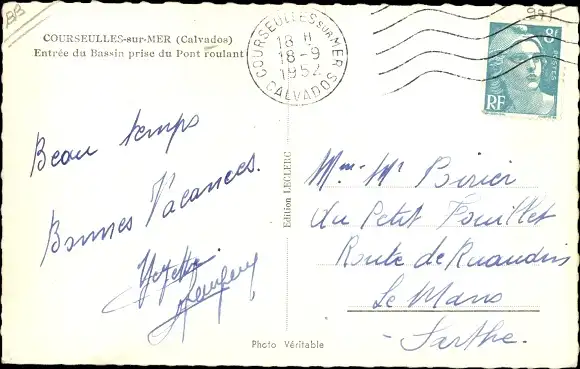 COURSEULLES-sur-MER (Calvados)
Entrée du Bassin prise du Pont roulant
COURSEULLES-SUR-MER
18 H
18-9
1952
CALVADOS
8F
POSTES
RF
Beau temps
Bonnes Vacances.
Edition LECLERC
Mme Mr
du Petit Fouillet
Route de Ruaudin
Le Mans
- Sarthe -
Photo Véritable